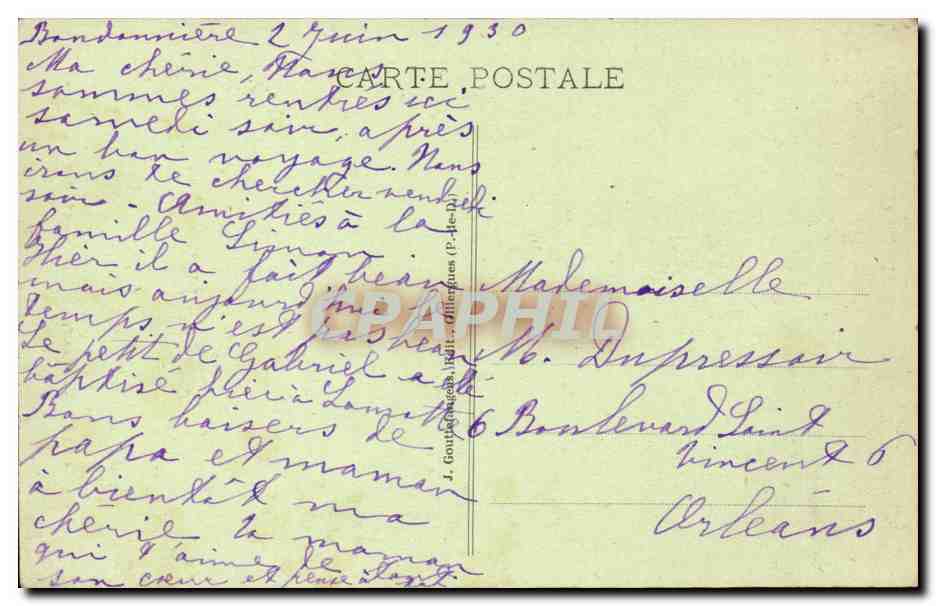 Bondonnière 2 Juin 1930
Ma chérie, Nous
sommes rentrés ici
samedi soir, après
un bon voyage. Nous
irons te chercher vendredi
soir - Amitiés à la
famille Simon
Hier il a fait beau
mais aujourd'hui le
temps n'est pas beau
Le petit de Gabriel a été
baptisé hier à
Bons baisers de
papa et maman
à bientôt ma
chérie ta maman
qui t'aime de
son cœur et pense à
CARTE POSTALE
J. Gouttefangeas, Edit., Olliergues (P.-de-D.)
CPAPHIL
Mademoiselle
M. Dupressoir
6 Boulevard Saint
Vincent 6
Orléans